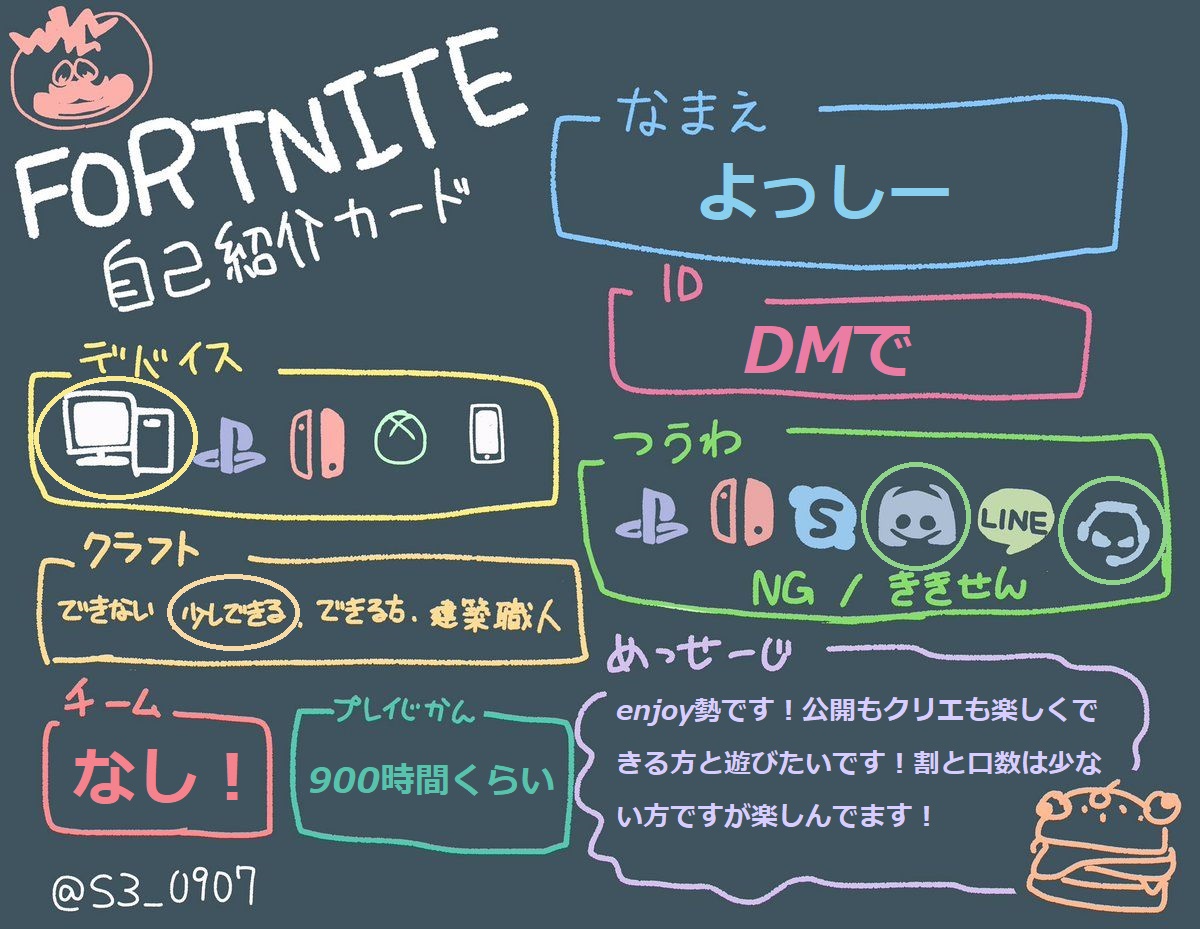 FORTNITE
自己紹介カード
なまえ
よっしー
ID
DMで
デバイス
つうわ
LINE
NG / ききせん
クラフト
できない 少しできる. できる方. 建築職人
チーム
なし！
プレイじかん
900時間くらい
めっせーじ
enjoy勢です！公開もクリエも楽しくで
きる方と遊びたいです！割と口数は少な
い方ですが楽しんでます！
@S3_0907